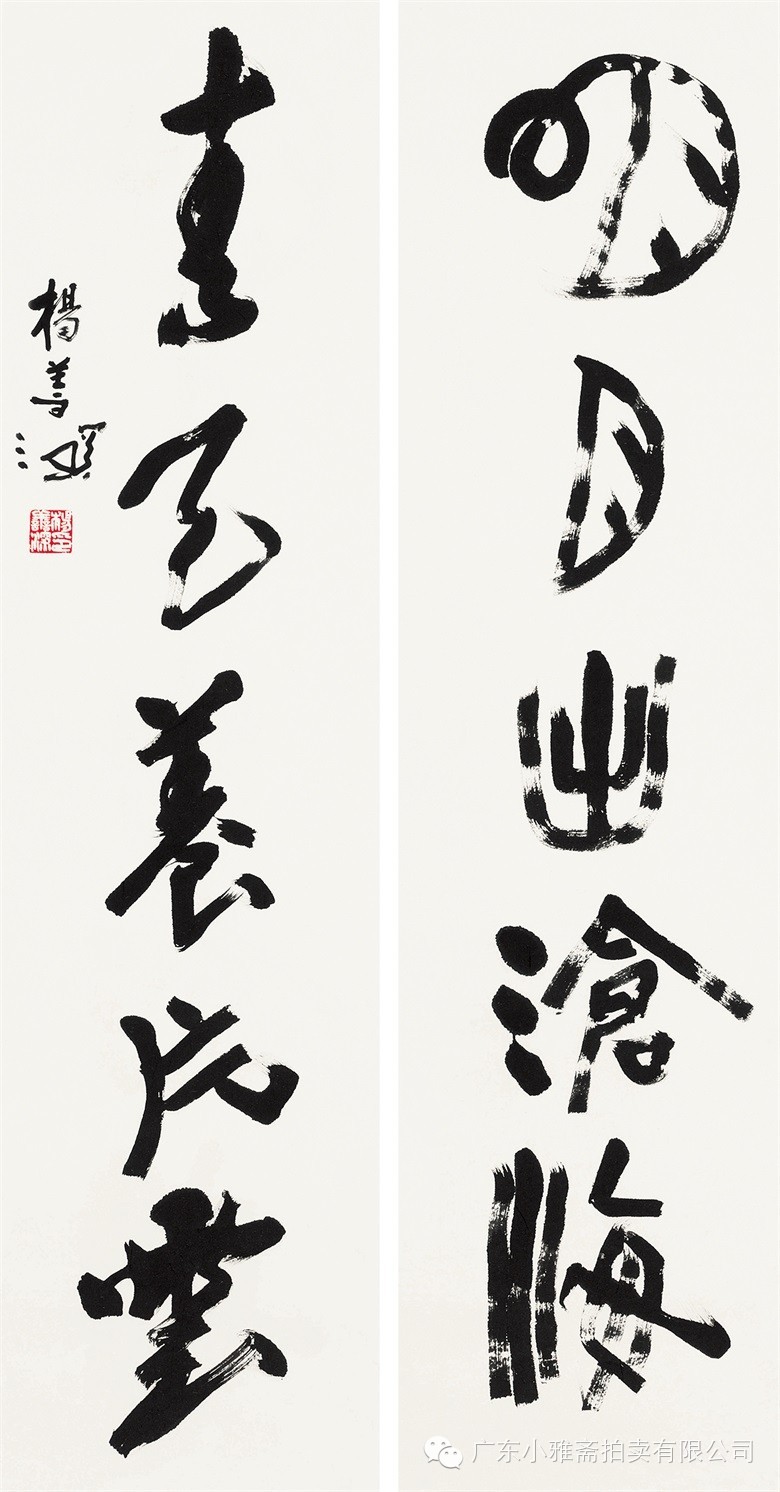 明月出滄海
養片雲
楊善深
楊善深印
广东小雅斋拍卖有限公司